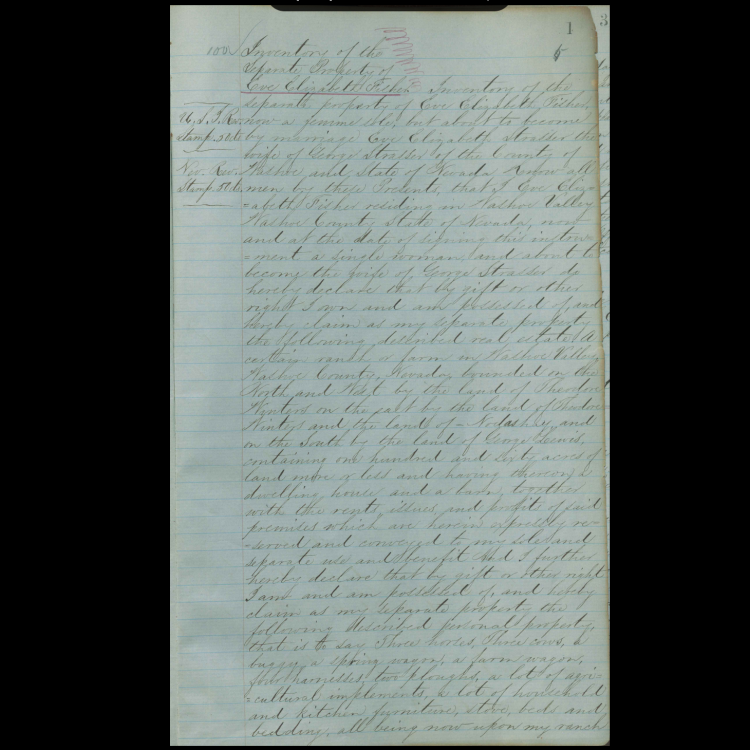 1
3
100
Inventory of the
Separate Property of
Eve Elizabeth Fisher Inventory of the
separate property of Eve Elizabeth Fisher,
U.S.I. Rev. now a femme sole, but about to become
Stamp. 50 cts. by marriage Eve Elizabeth Strasser the
wife of George Strasser of the County of
Nev. Rev. Washoe and State of Nevada Know all
Stamp 50 cts. men by these Presents, that I Eve Eliza-
=abeth Fisher residing in Washoe Valley
Washoe County State of Nevada, now
and at the date of signing this instru-
=ment a single woman, and about to
become the wife of George Strasser do
hereby declare that by gift or other
right I own and am possessed of, and
hereby claim as my separate property
the following described real estate A
certain ranch or farm in Washoe Valley,
Washoe County, Nevada, bounded on the
North and West by the land of Theodore
Winters on the east by the land of Theodore
Winters and the lands of - and
on the South by the land of George
containing one hundred and sixty acres of
land more or less and having thereon a
dwelling house and a barn, together
with the rents, issues, and profits of said
premises which are herein expressly re-
-served and conveyed to my sole and
separate use and benefit And I further
hereby declare that by gift or other right
I am and am possessed of, and hereby
claim as my separate property the
following described personal property,
that is to say Three horses, Three cows, a
buggy, a spring wagon, a farm wagon,
four harnesses, two ploughs, a lot of agri-
=cultural implements, a lot of household
and kitchen furniture, stove, beds and
bedding, all being now upon my ranch